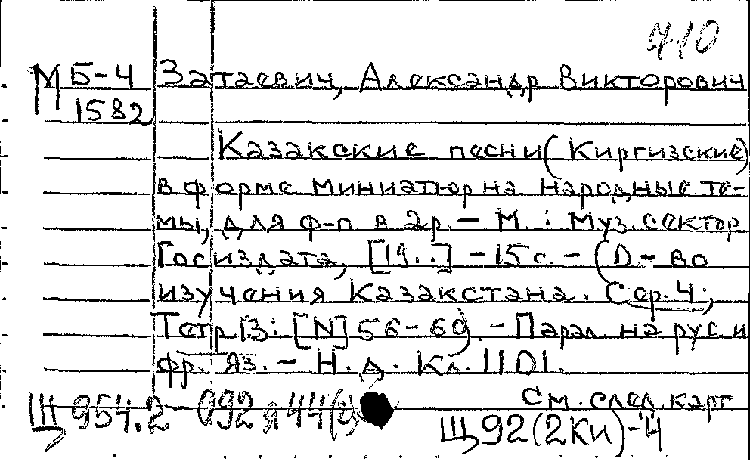 710
М Б-4 Затаевич, Александр Викторович
1582
Казакские песни (Киргизские)
в форме миниатюр на народные те-
мы, для ф-п в 2р. - М. : Муз.сектор
Госиздата, [19..] - 15 с. - (О-во
изучения Казакстана. Сер. 4;
Тетр. 3: [N] 56-69. - Парал на рус и
фр. яз. - Н. д. Кл. 1101.
См. след. карт
Щ 954.2-092я44
Щ92(2Ки)-4